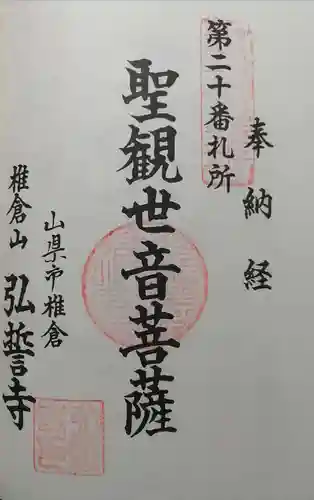 奉納経
第二十番札所
聖観世音菩薩
山県市椎倉
椎倉山
弘誓寺